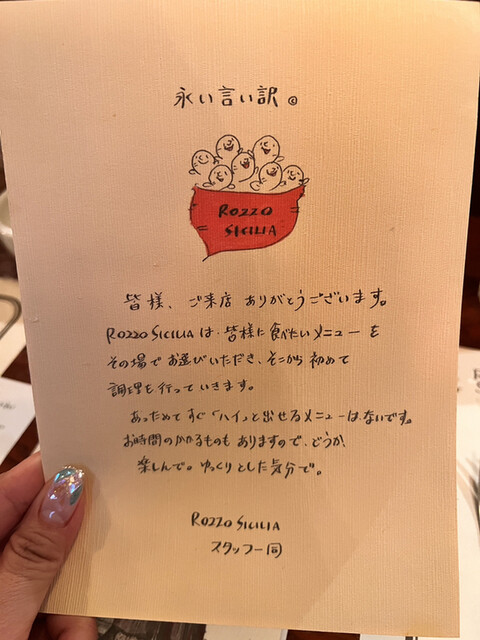 永い言い訳 ©
ROZZO
SICILIA
皆様、ご来店ありがとうございます。
ROZZO SICILIAは、皆様に食べたいメニューを
その場でお選びいただき、そこから初めて
調理を行っていきます。
あっためてすぐ「ハイ」と出せるメニューは、ないです。
お時間のかかるものもありますので、どうか、
楽しんで。ゆっくりとした気分で。
ROZZO SICILIA
スタッフ一同